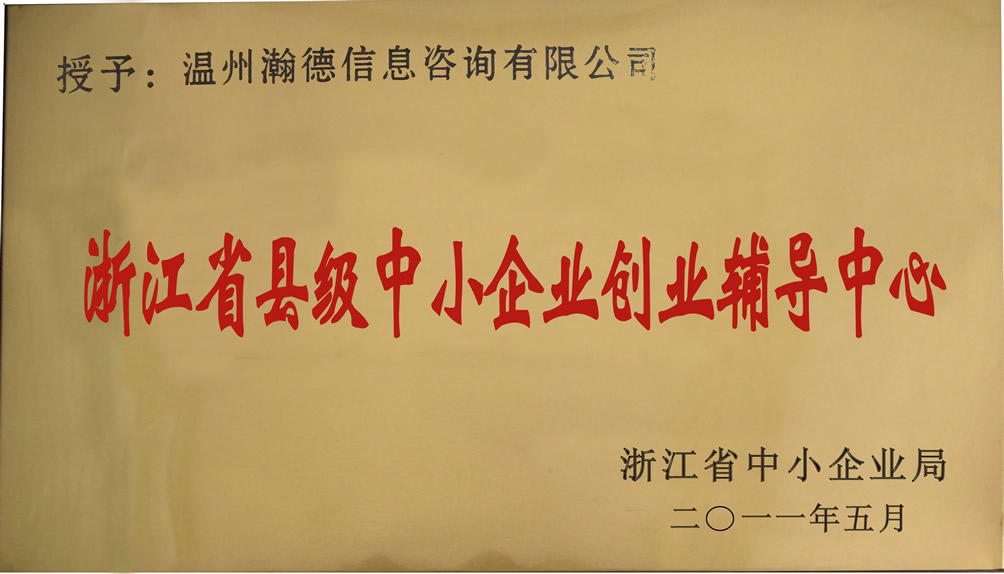 授予：温州瀚德信息咨询有限公司
浙江省县级中小企业创业辅导中心
浙江省中小企业局
二〇一一年五月